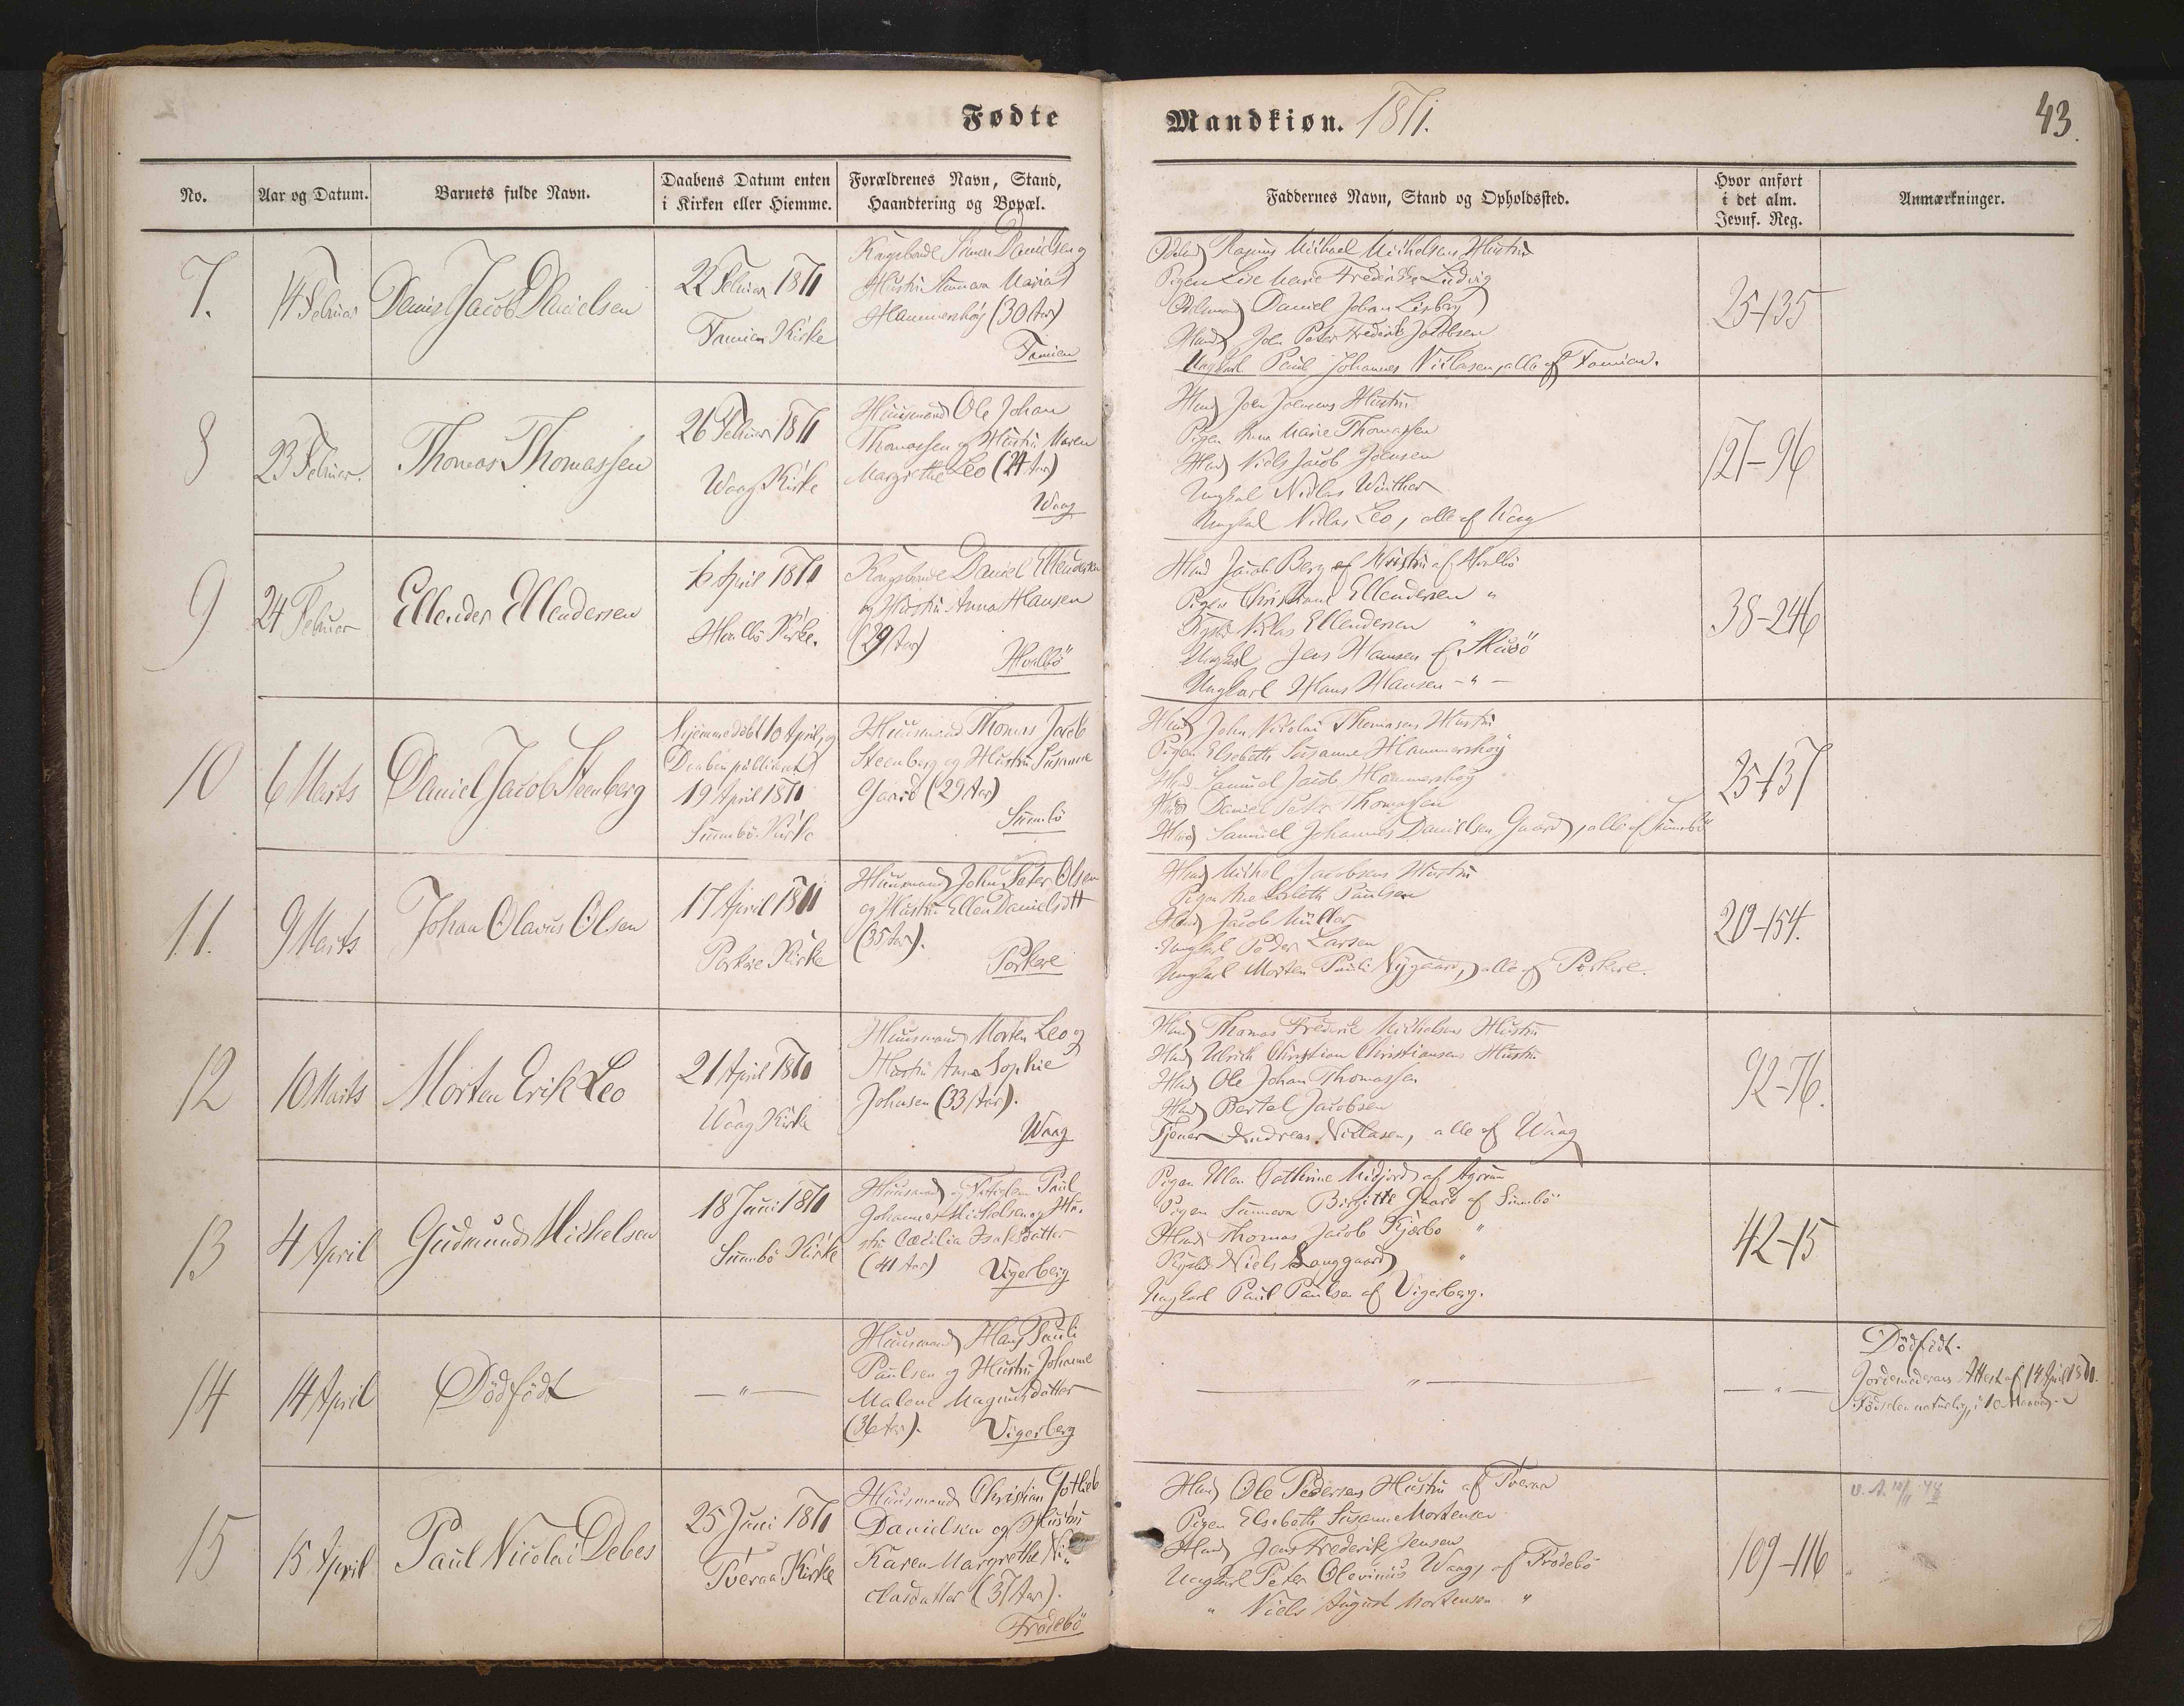 Fødte
Mandkiøn. 1871.
43.
No.
Aar og Datum.
Barnets fulde Navn.
Daabens Datum enten
i Kirken eller Hiemme.
Forældrenes Navn, Stand,
Haandtering og Bopæl.
Faddernes Navn, Stand og Opholdssted.
Hvor anført
i det alm.
Jevnf. Reg.
Anmærkninger.
7.
14 Februar
Jacob Danielsen
22 Februar 1871
Famien Kirke
Kongsbonde Simon Danielsen og
Hustru Maria
Hammershøj (30 Aar)
Famien
Rasmus Michael Michelsens Hustru
Pigen Lise Marie Frederikke Ludvig
Daniel Johan Lisberg
Huusmd Joen Peter Frederik Jacobsen
Ungkarl Paul Johannes Niclasen, alle af Famien.
25-135
8
23 Februar.
Thomas Thomassen
26 Februar 1871
Waag Kirke
Huusmand Ole Johan
Thomassen og Hustru Maren
Margrethe Leo (24 Aar)
Waag
Huusmd Joen Joensens Hustru
Pigen Anna Marie Thomassen
Huusmd Niels Jacob Joensen
Ungkarl Niclas Winther
Ungkarl Niclas Leo, alle af Waag
127-96
9
24 Februar
Ellender Ellendersen
6 April 1871
Hvalbö Kirke.
Kongsbonde Daniel Ellendersen
og Hustru Anna Hansen
(29 Aar)
Hvalbö
Huusmd Jacob Berg og Hustru af Hvalbö
Pigen Christiane Ellendersen "
Niclas Ellendersen "
Ungkarl Jens Hansen af Skuö
Ungkarl Hans Hansen - " -
38-246
10
6 Marts
Daniel Jacob Steenberg
Hjemmedöbt 10 April, og
Daaben publiceret
19 April 1871
Sumbö Kirke
Huusmand Thomas Jacob
Steenberg og Hustru Susanne
Gaard (29 Aar)
Sumbö
Huusmd John Nicolai Thomasens Hustru
Pigen Elsebeth Susanne Hammershøj
Huusmd Samuel Jacob Hammershøj
Huusmd Daniel Peter Thomassen
Huusmd Samuel Johannes Danielsen Gaard, alle af Sumbö
25-137
11.
9 Marts
Johan Olavus Olsen
17 April 1871
Porkere Kirke
Huusmand John Peter Olsen
og Hustru Ellen Danielsdtt
(35 Aar).
Porkere
Huusmd Michel Jacobsens Hustru
Pigen Ane Elsbeth Paulsen
Huusmd Jacob Müller
Ungkarl Peder Larsen
Ungkarl Morten Pauli Nygaard, alle af Porkere.
20-154.
12
10 Marts
Morten Erik Leo
21 April 1871
Waag Kirke
Huusmand Morten Leo og
Hustru Anna Sophie
Johnsen (33 Aar).
Waag
Huusmd Thomas Frederik Michelsens Hustru
Huusmd Ulrich Christian Christiansens Hustru
Huusmd Ole Johan Thomassen
Huusmd Bertel Jacobsen
Tjener Andreas Niclasen, alle af Waag
92-76.
13
4 April
Gudmund Michelsen
18 Juni 1871
Sumbö Kirke
Huusmand og Paul
Johannes Michelsen og Hu-
stru Cæcilia Isaksdatter
(41 Aar)
Vigerberg
Pigen Ellen Cathrine Midjord af
Pigen Sunneva Birgitte Gaard af Sumbö
Huusmd Thomas Jacob Kjærbo "
Niels Langgaard "
Ungkarl Paul Paulsen af Vigerberg.
42-15
14
14 April
Dödfödt
— " —
Huusmand Hans Pauli
Paulsen og Hustru Johanne
Malene Magnusdatter
(36 Aar).
Vigerberg
— " —
— " —
Dödfödt.
Jordemoderens Attest af 14 April 1871.
Födselen naturlig,
15
15 April
Paul Nicolai Debes
25 Juni 1871
Tveraa Kirke
Huusmand Christian Gotlieb
Danielsen og Hustru
Karen Margrethe Ni-
clasdatter (37 Aar).
Frodebö
Huusmd Ole Pedersens Hustru af Tveraa
Pigen Elsebeth Susanne Mortensen
Huusmd Jens Frederik Jensen
Ungkarl Peter Olevinus Waag, af Frodebö
" Niels August Mortensen "
109-116